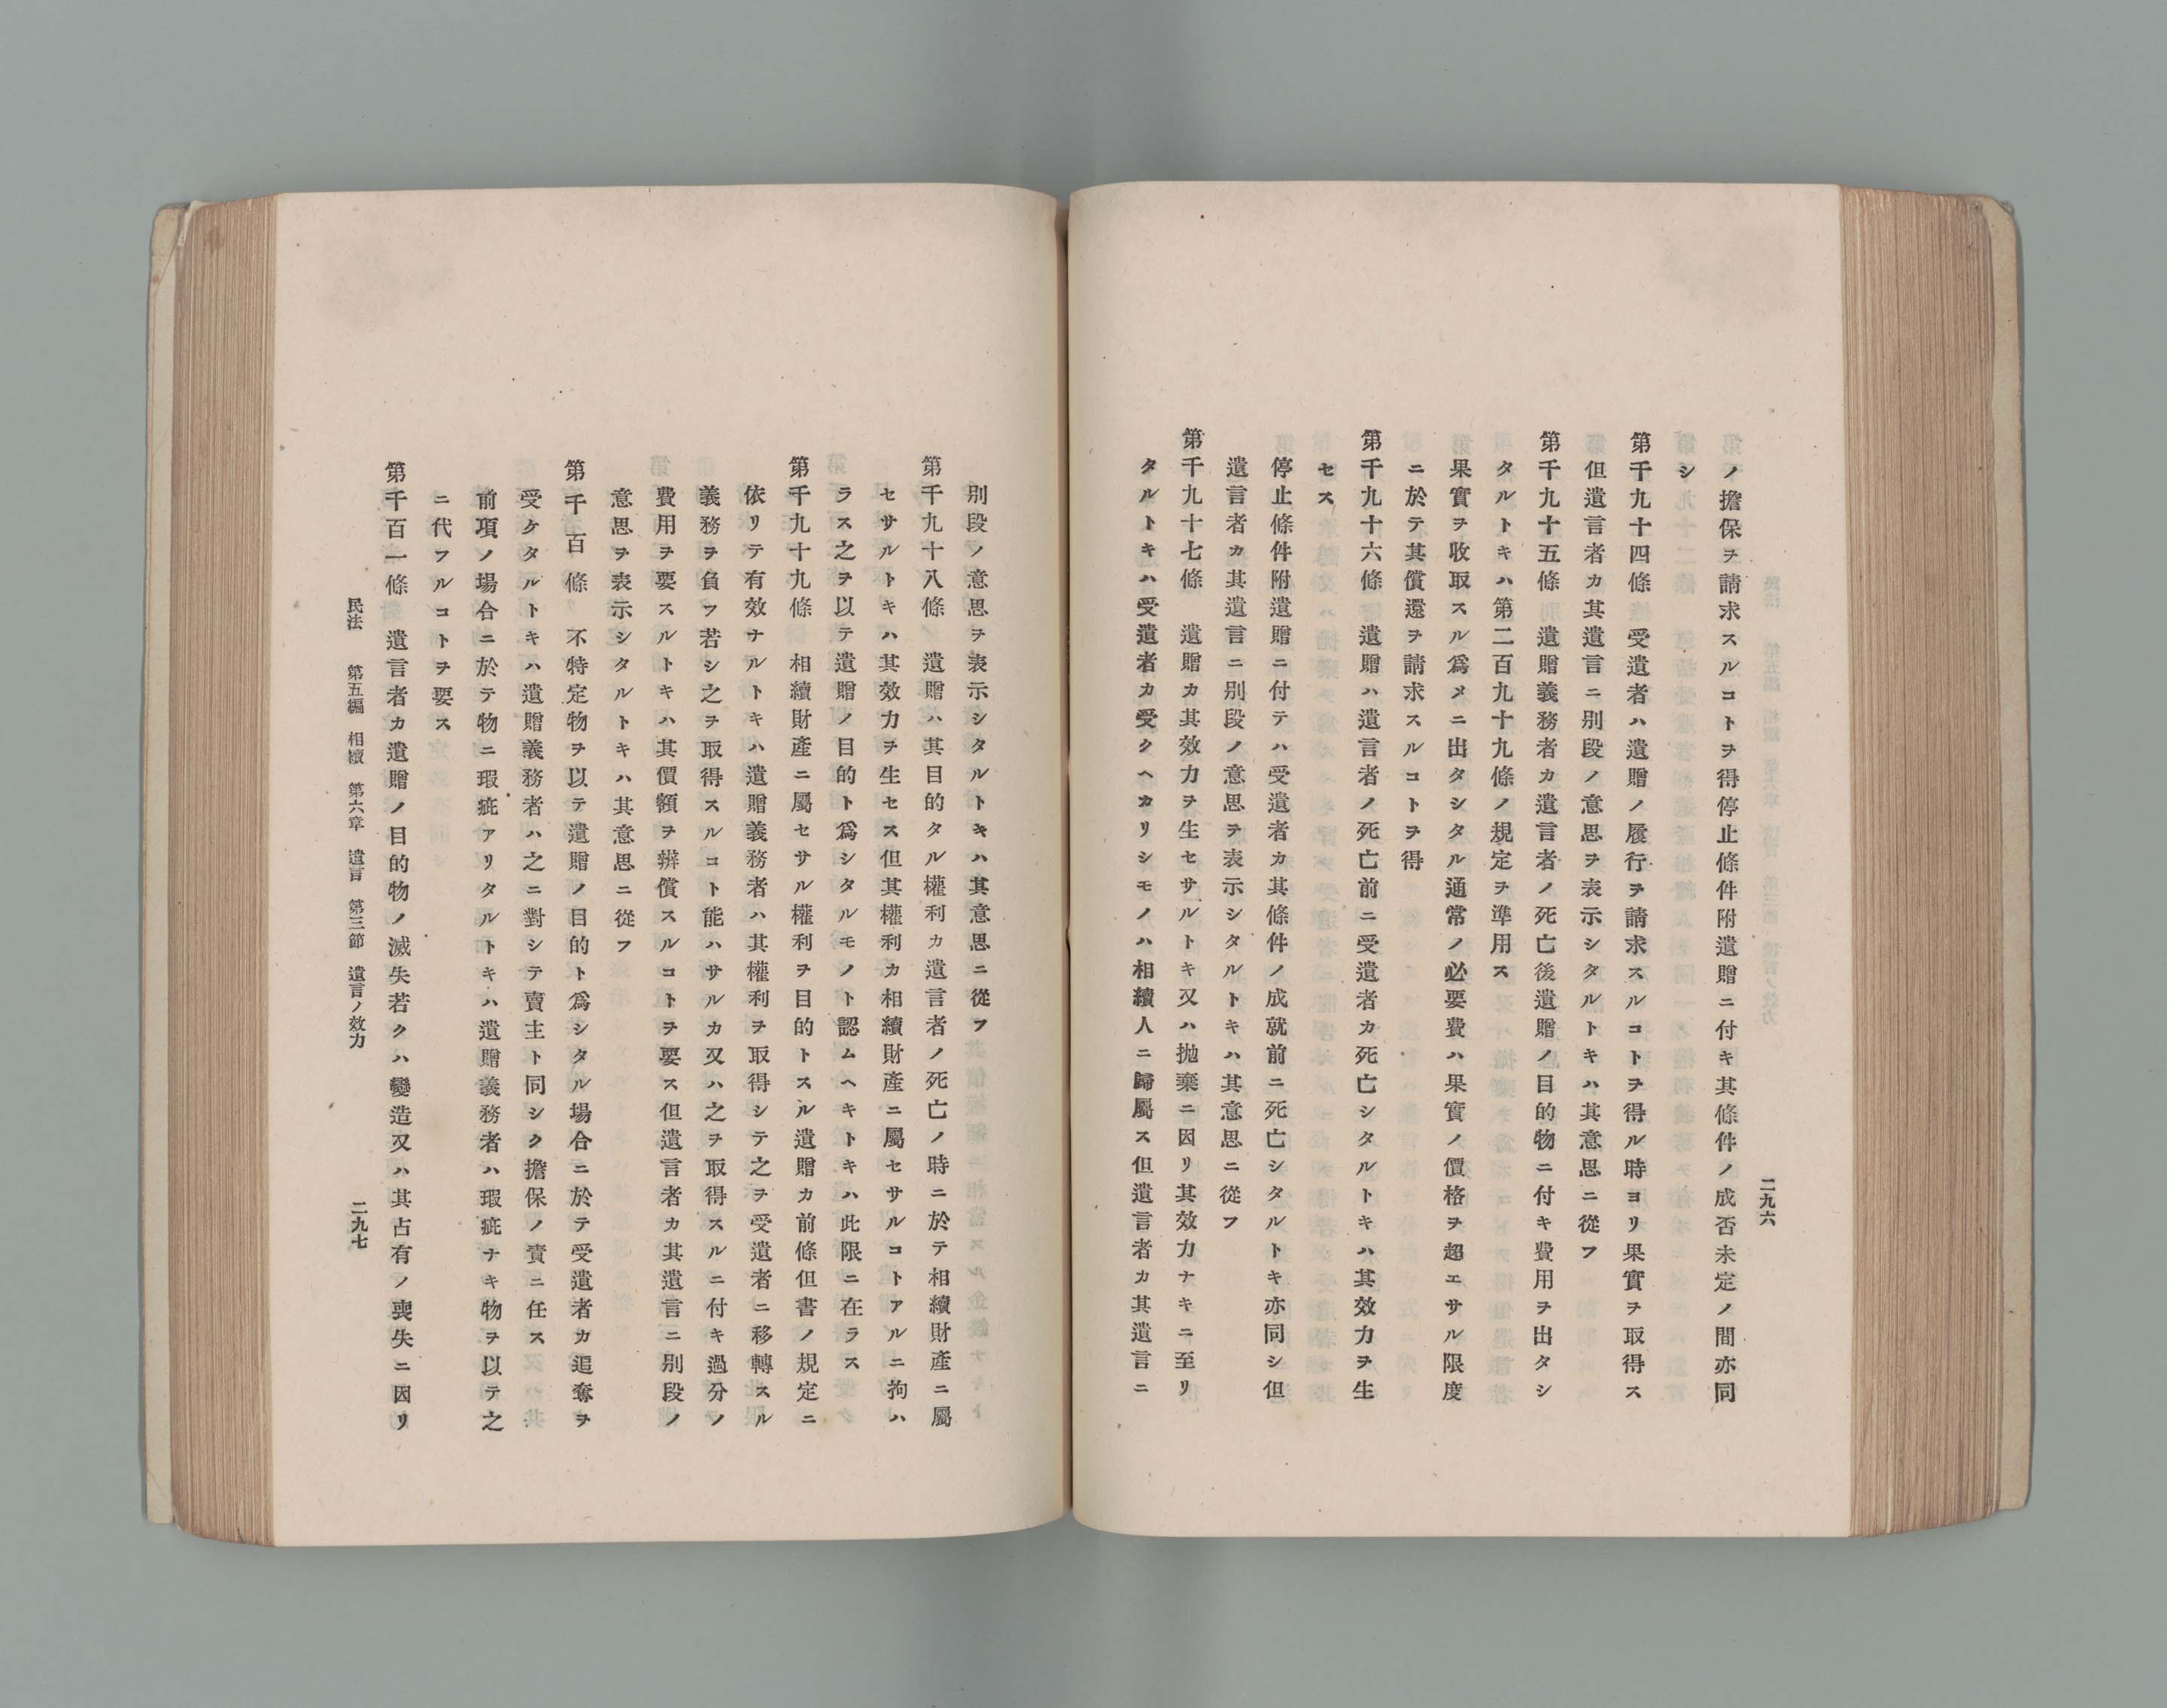 二九六
ノ擔保ヲ請求スルコトヲ得停止條件附遺贈ニ付キ其條件ノ成否未定ノ間亦同
シ
第千九十四條　受遺者ハ遺贈ノ履行ヲ請求スルコトヲ得ル時ヨリ果實ヲ取得ス
但遺言者カ其遺言ニ別段ノ意思ヲ表示シタルトキハ其意思ニ從フ
第千九十五條　遺贈義務者カ遺言者ノ死亡後遺贈ノ目的物ニ付キ費用ヲ出タシ
タルトキハ第二百九十九條ノ規定ヲ準用ス
果實ヲ收取スル爲メニ出タシタル通常ノ必要費ハ果實ノ價格ヲ超エサル限度
ニ於テ其償還ヲ請求スルコトヲ得
第千九十六條　遺贈ハ遺言者ノ死亡前ニ受遺者カ死亡シタルトキハ其效力ヲ生
セス
停止條件附遺贈ニ付テハ受遺者カ其條件ノ成就前ニ死亡シタルトキ亦同シ但
遺言者カ其遺言ニ別段ノ意思ヲ表示シタルトキハ其意思ニ從フ
第千九十七條　遺贈カ其效力ヲ生セサルトキ又ハ抛棄ニ因リ其效力ナキニ至リ
タルトキハ受遺者カ受クヘカリシモノハ相續人ニ歸屬ス但遺言者カ其遺言ニ
別段ノ意思ヲ表示シタルトキハ其意思ニ從フ
第千九十八條　遺贈ハ其目的タル權利カ遺言者ノ死亡ノ時ニ於テ相續財產ニ屬
セサルトキハ其效力ヲ生セス但其權利カ相續財產ニ屬セサルコトアルニ拘ハ
ラス之ヲ以テ遺贈ノ目的ト爲シタルモノト認ムヘキトキハ此限ニ在ラス
第千九十九條　相續財產ニ屬セサル權利ヲ目的トスル遺贈カ前條但書ノ規定ニ
依リテ有效ナルトキハ遺贈義務者ハ其權利ヲ取得シテ之ヲ受遺者ニ移轉スル
義務ヲ負フ若シ之ヲ取得スルコト能ハサルカ又ハ之ヲ取得スルニ付キ過分ノ
費用ヲ要スルトキハ其價額ヲ辨償スルコトヲ要ス但遺言者カ其遺言ニ別段ノ
意思ヲ表示シタルトキハ其意思ニ從フ
第千百條　不特定物ヲ以テ遺贈ノ目的ト爲シタル場合ニ於テ受遺者カ追奪ヲ
受ケタルトキハ遺贈義務者ハ之ニ對シテ賣主ト同シク擔保ノ責ニ任ス
前項ノ場合ニ於テ物ニ瑕疵アリタルトキハ遺贈義務者ハ瑕疵ナキ物ヲ以テ之
ニ代フルコトヲ要ス
第千百一條　遺言者カ遺贈ノ目的物ノ滅失若クハ變造又ハ其占有ノ喪失ニ因リ
民法　第五編　相續　第六章　遺言　第三節　遺言ノ效力　二九七